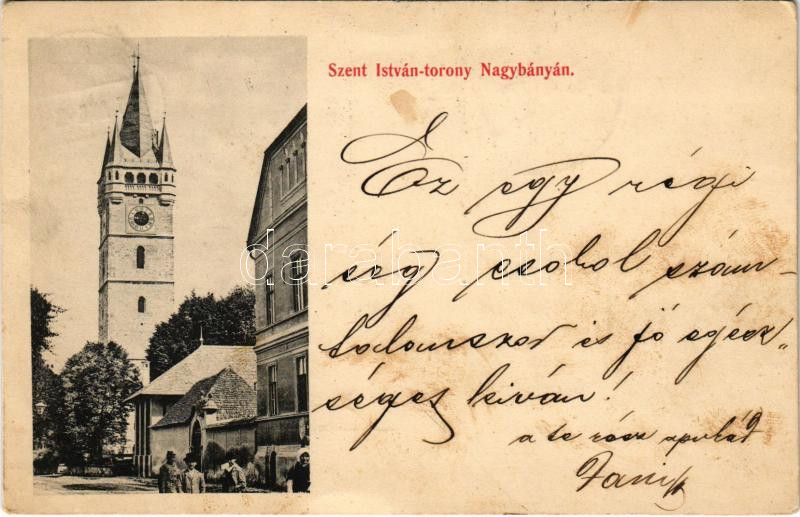 Szent István-torony Nagybányán.
Ez egy régi
ség csokol szám-
talanszor és jó egész„
séges kiván!
a te rósz apukád
Dani
darabanth